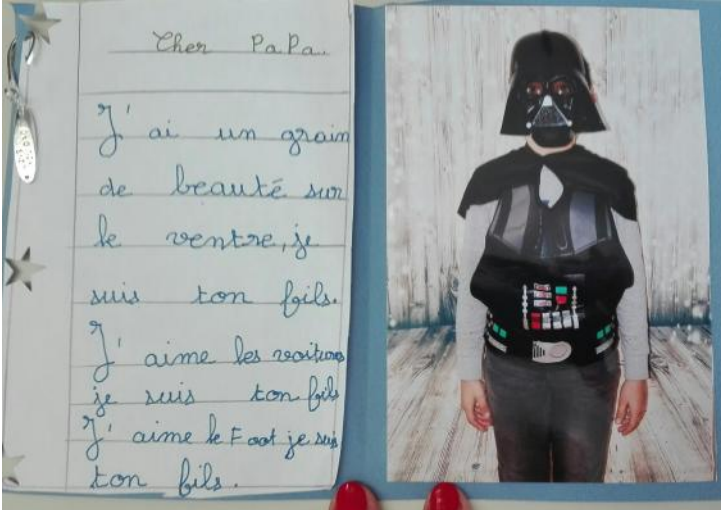 Cher PaPa.
J'ai un grain
de beauté sur
le ventre, je
suis ton fils.
J'aime les voitures
je suis ton fils
J'aime le Foot je suis
ton fils.